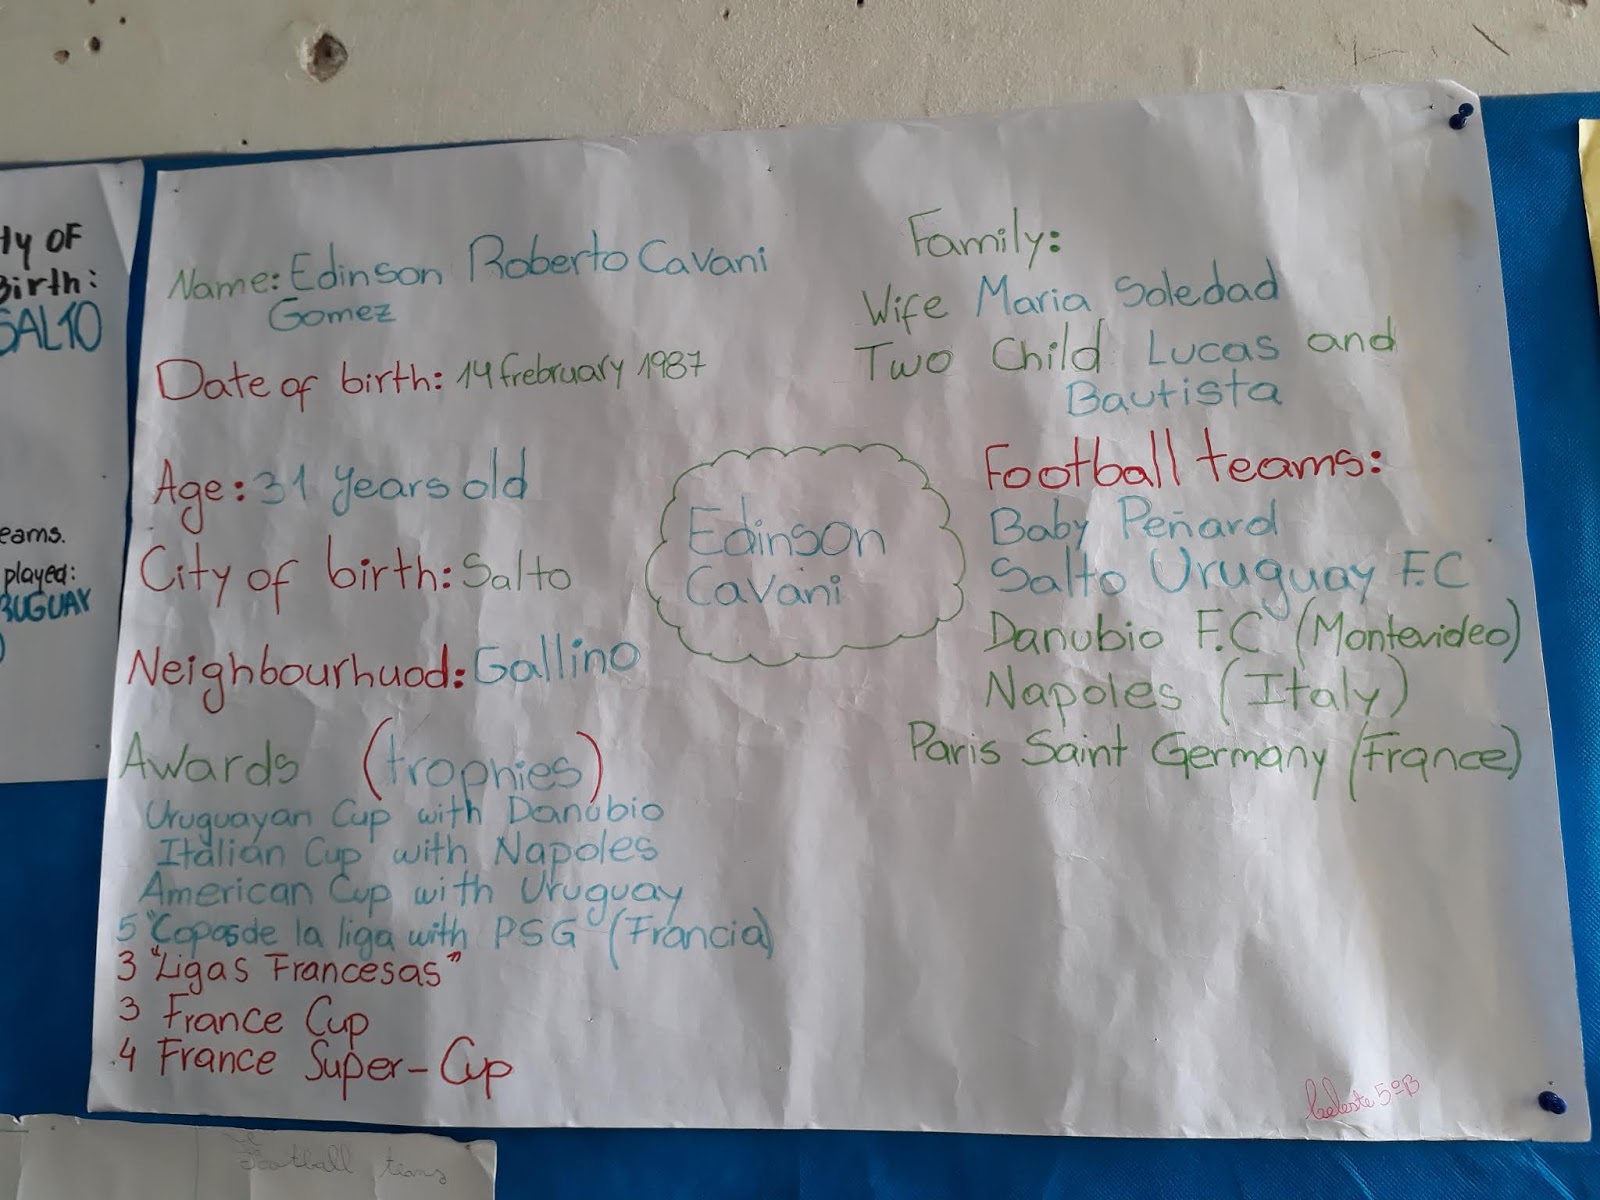 Name: Edinson Roberto Cavani
Gomez
Date of birth: 14 frebruary 1987
Age: 31 years old
City of birth: Salto
Neighbourhuod: Gallino
Awards (trophies)
Uruguayan Cup with Danubio
Italian Cup with Napoles
American Cup with Uruguay
5 "Copas de la liga with PSG (Francia)
3 "Ligas Francesas"
3 France Cup
4 France Super-Cup
Edinson
Cavani
Family:
Wife Maria Soledad
Two Child Lucas and
Bautista
Football teams:
Baby Peñarol
Salto Uruguay F.C
Danubio F.C (Montevideo)
Napoles (Italy)
Paris Saint Germany (France)
Celeste 5ºB
ity OF
Birth:
SALTO
eams.
played:
RUGUAY
)
Football teams